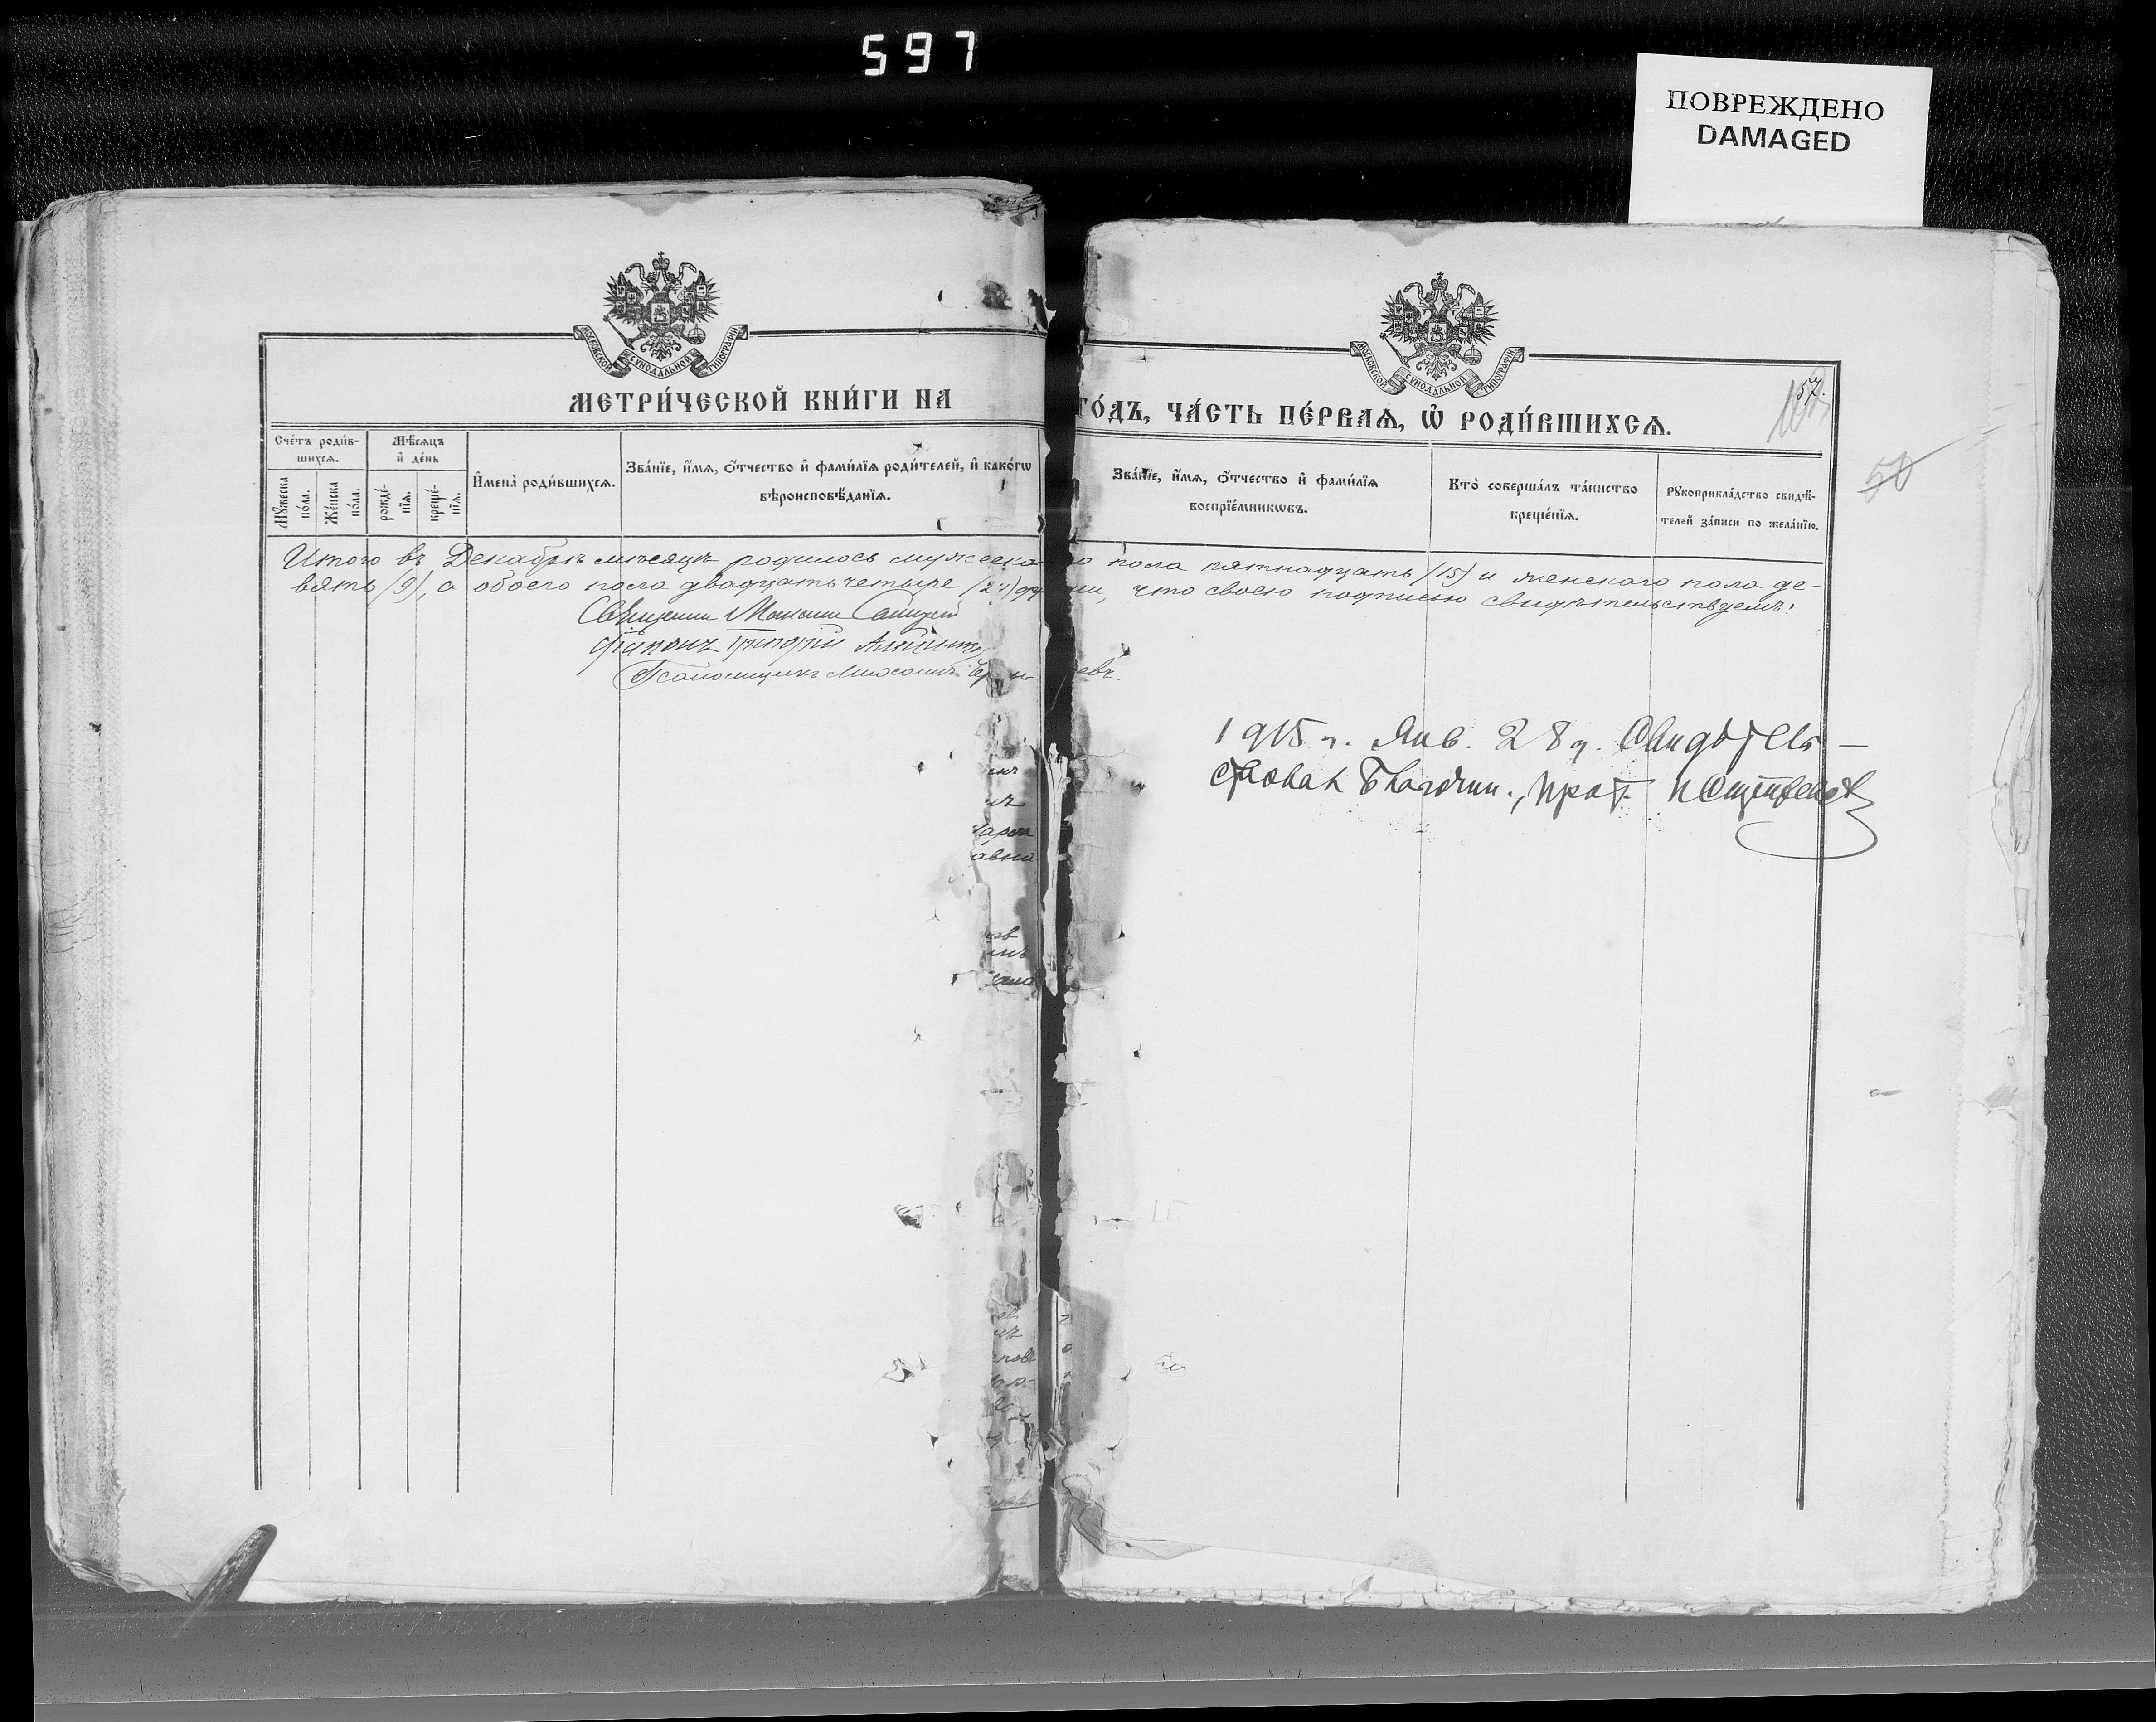 597
ПОВРЕЖДЕНО
DAMAGED
МОСКОВСКОЙ СУНОДАЛЬНОЙ ТИПОГРАФІИ
МОСКОВСКОЙ СУНОДАЛЬНОЙ ТИПОГРАФІИ
МЕТРИ́ЧЕСКОЙ КНИ́ГИ НА ГО́ДЪ, ЧА́СТЬ ПЕ́РВАѦ, Ѿ РОДИ́ВШИХСѦ.
57.
50
Сче́тъ роди́в-
шихсѧ.
Мꙋ́жеска
по́ла.
Же́нска
по́ла.
Мѣ́сѧцъ
и҆ де́нь
рожде́-
нїѧ.
креще́-
нїѧ.
И҆мена̀ роди́вшихсѧ.
Зва́нїе, и҆́мѧ, ѻ҆́тчество и҆ фами́лїѧ роди́телей, и҆ како́гѡ
вѣроисповѣ́данїѧ.
Зва́нїе, и҆́мѧ, ѻ҆́тчество и҆ фами́лїѧ
воспрїе́мникѡвъ.
Кто̀ соверша́лъ та́инство
креще́нїѧ.
Рꙋкоприкла́дство свидѣ́-
телей за́писи по жела́нїю.
Итого въ Декабрѣ мѣсяцѣ родилось мужеска го пола пятнадцать /15/ и женскаго пола де-
вять /9/, а обоего пола двадцать четыре /24/ ду ши, что своею подписью свидѣтельствуемъ:
Священникъ Максимъ
Діаконъ Григорій
Псаломщикъ
евъ.
1915 г. Янв. 28 д. Свидѣтель-
ствовал Благочин., прот.